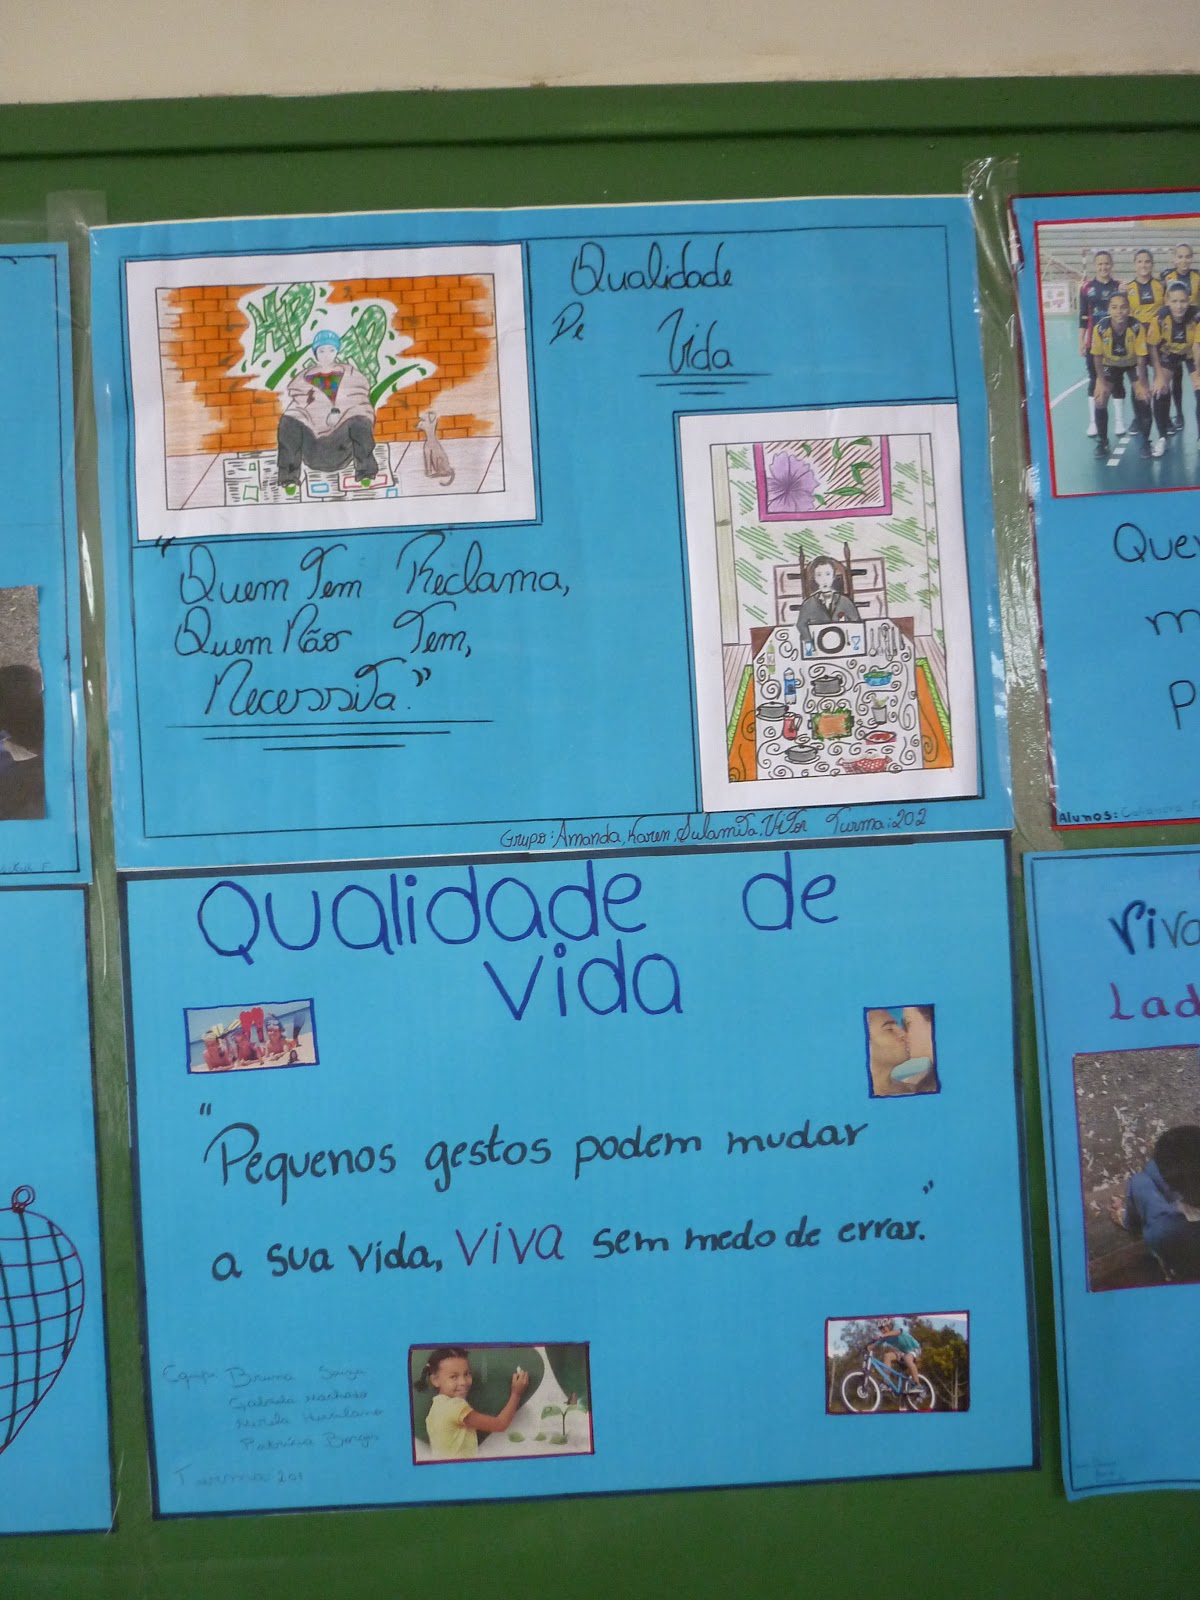 Qualidade
De Vida
"Quem Tem Reclama,
Quem Não Tem,
Necessita."
Grupo: Amanda, Karen, Sulamita, Vitor Turma: 202
Qualidade de
vida
"Pequenos gestos podem mudar
a sua vida, VIVA sem medo de errar."
Equipe Bruna Souza
Gabriela Machado
Patrícia Borges
Turma: 201
Que
m
P
Alunos:
Viva
Lad